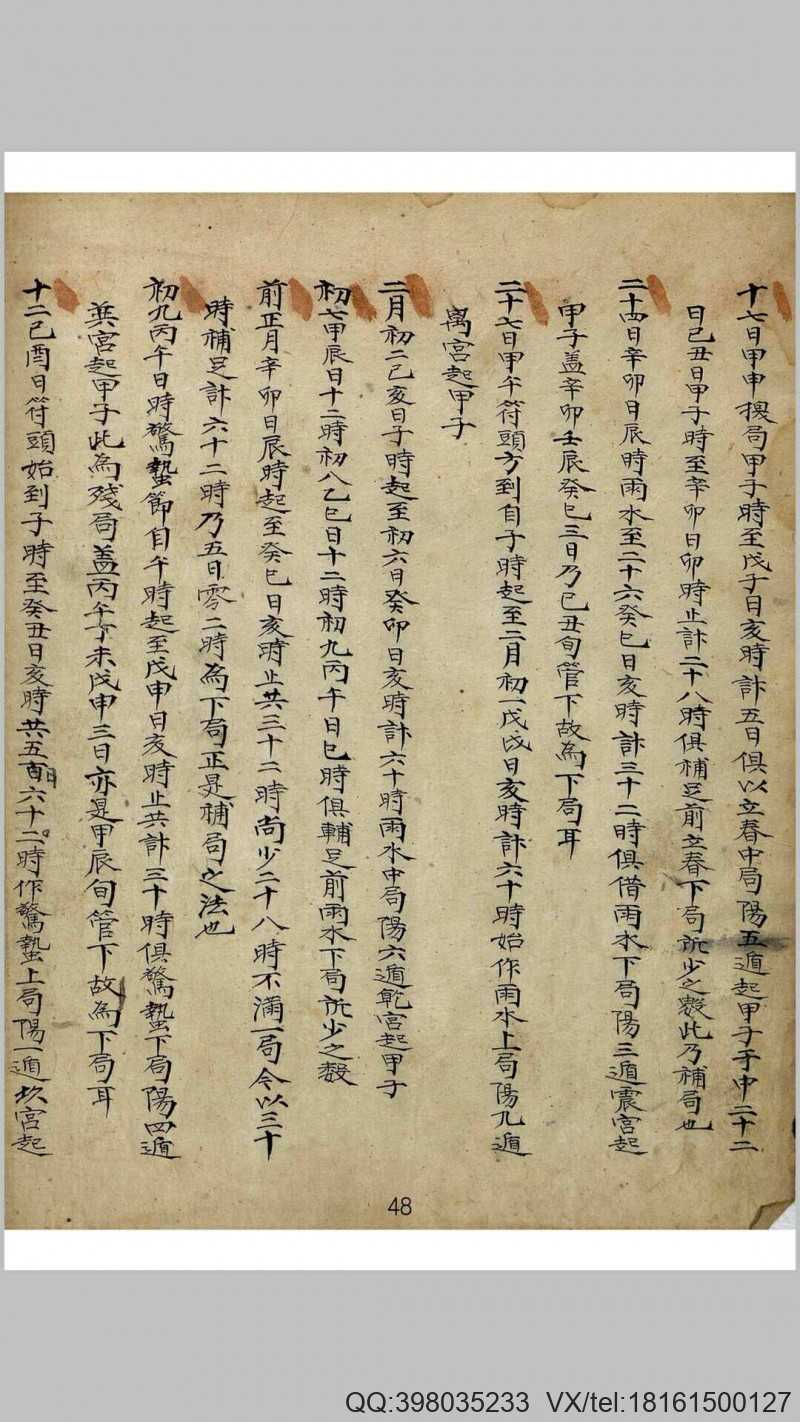 十七日甲申換局甲子時至戊子日亥時計五日俱以立春中局陽五遁起甲子于中二十二
日己丑日甲子時至辛卯日卯時止計二十八時俱補足前立春下局所少之数此乃補局也
二十四日辛卯日辰時雨水至二十六癸巳日亥時計三十二時俱借雨水下局陽三遁震宮起
甲子盖辛卯壬辰癸巳三日乃己丑旬管下故為下局耳
二十七日甲午符頭方到自子時起至二月初一戊戌日亥時計六十時始作雨水上局陽九遁
离宮起甲子
二月初二己亥日子時起至初六日癸卯日亥時計六十時雨水中局陽六遁乾宮起甲子
初七甲辰日十二時初八乙巳日十二時初九丙午日巳時俱輔足前雨水下局所少之数
前正月辛卯日辰時起至癸巳日亥時止共三十二時尚少二十八時不滿一局今以三十
時補足計六十二時乃五日零二時為下局正是補局之法也
初九丙午日時驚蟄節自午時起至戊申日亥時止共計三十時俱驚蟄下局陽四遁
巽宮起甲子此為殘局盖丙午丁未戊申三日亦是甲辰旬管下故為下局耳
十二己酉日符頭始到子時至癸丑日亥時共五百六十二時作驚蟄上局陽一遁坎宮起
48
QQ:398035233 VX/tel:18161500127